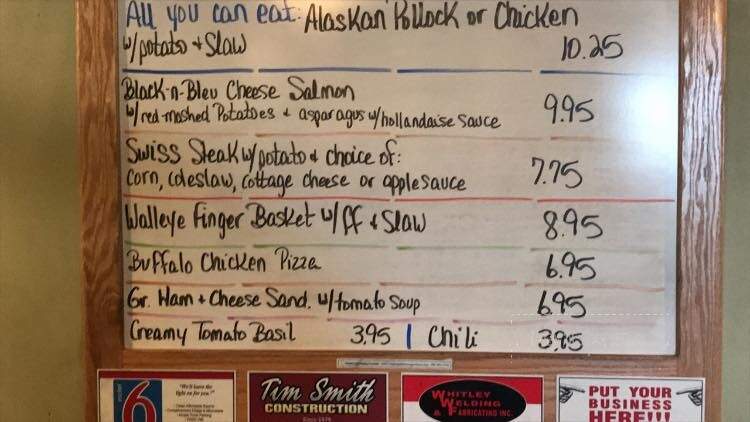 All you can eat: Alaskan Pollock or Chicken
w/potato + Slaw 10.25
Black-n-Bleu Cheese Salmon
w/red-mashed Potatoes + asparagus w/hollandaise sauce 9.95
Swiss Steak w/potato + choice of:
corn, coleslaw, cottage cheese or applesauce 7.75
Walleye Finger Basket w/ff + Slaw 8.95
Buffalo Chicken Pizza 6.95
Gr. Ham + Cheese Sand. w/tomato Soup 6.95
Creamy Tomato Basil 3.95 | Chili 3.95
6
"We'll leave the
light on for you."
Tim Smith
CONSTRUCTION
Since 1976
WHITLEY
WELDING
& FABRICATING INC.
PUT YOUR
BUSINESS
HERE!!!